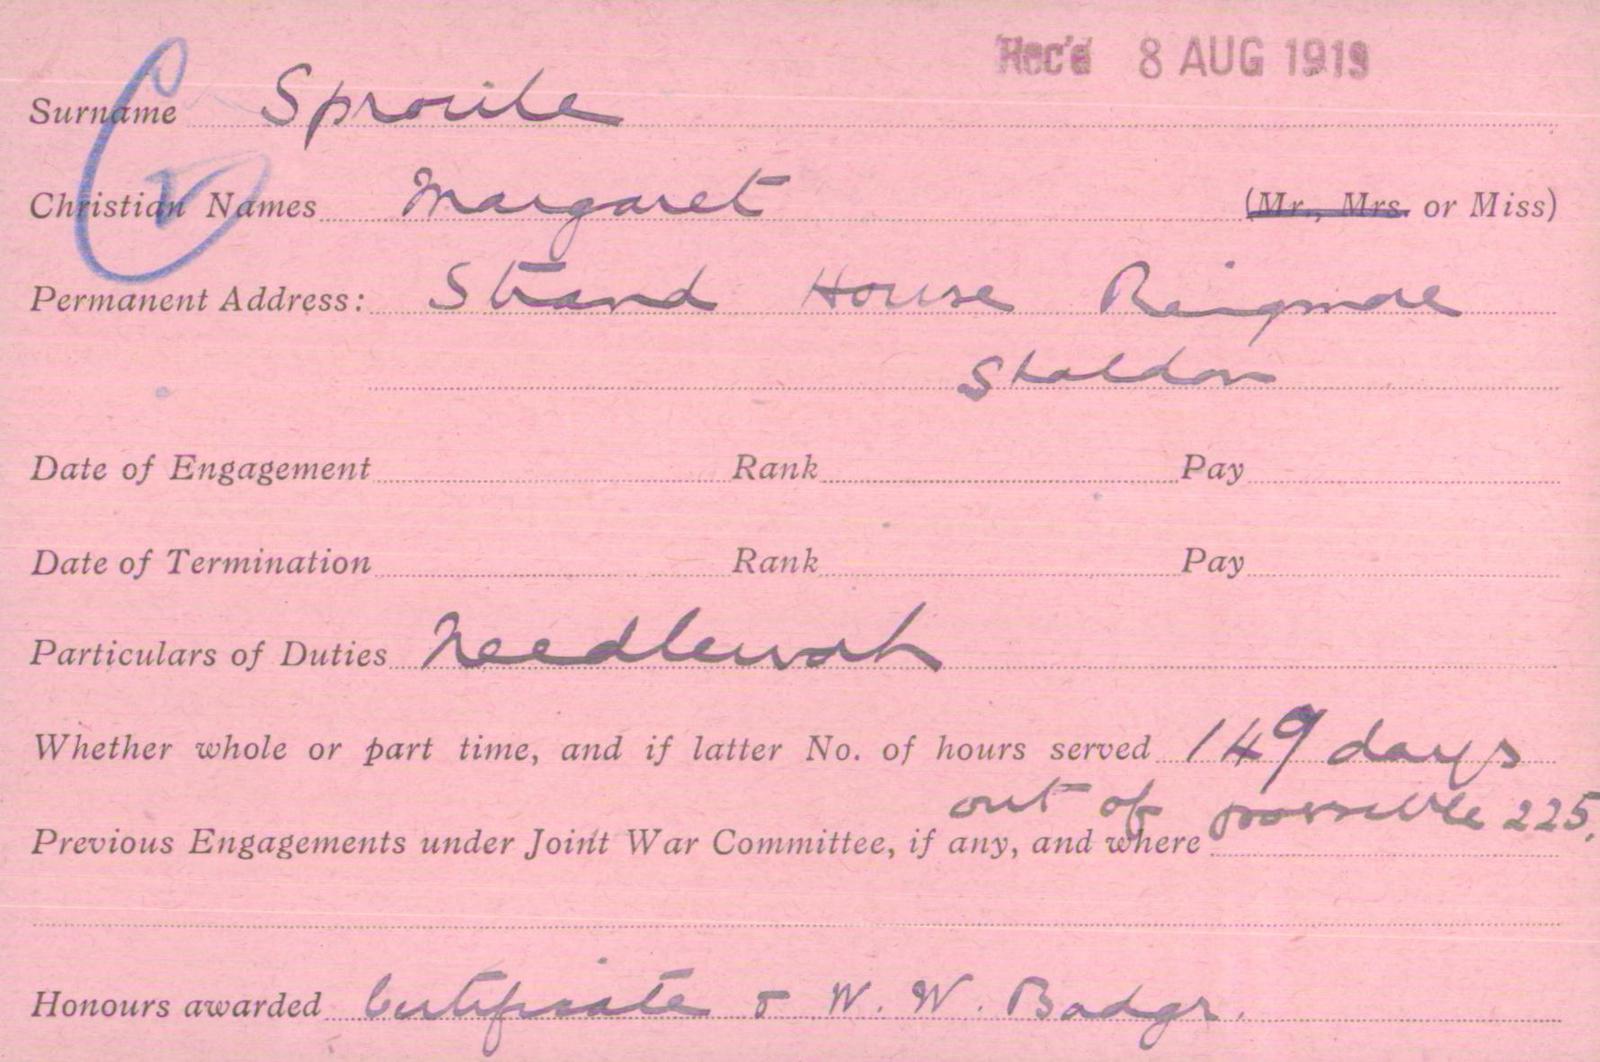 Rec'd 8 AUG 1919
Surname Sproule
Christian Names Margaret (Mr., Mrs. or Miss)
Permanent Address: Strand House Ringmore
Shaldon
Date of Engagement Rank Pay
Date of Termination Rank Pay
Particulars of Duties Needlework
Whether whole or part time, and if latter No. of hours served 149 days
out of possible 225.
Previous Engagements under Joint War Committee, if any, and where
Honours awarded Certificate & W. W. Badge.